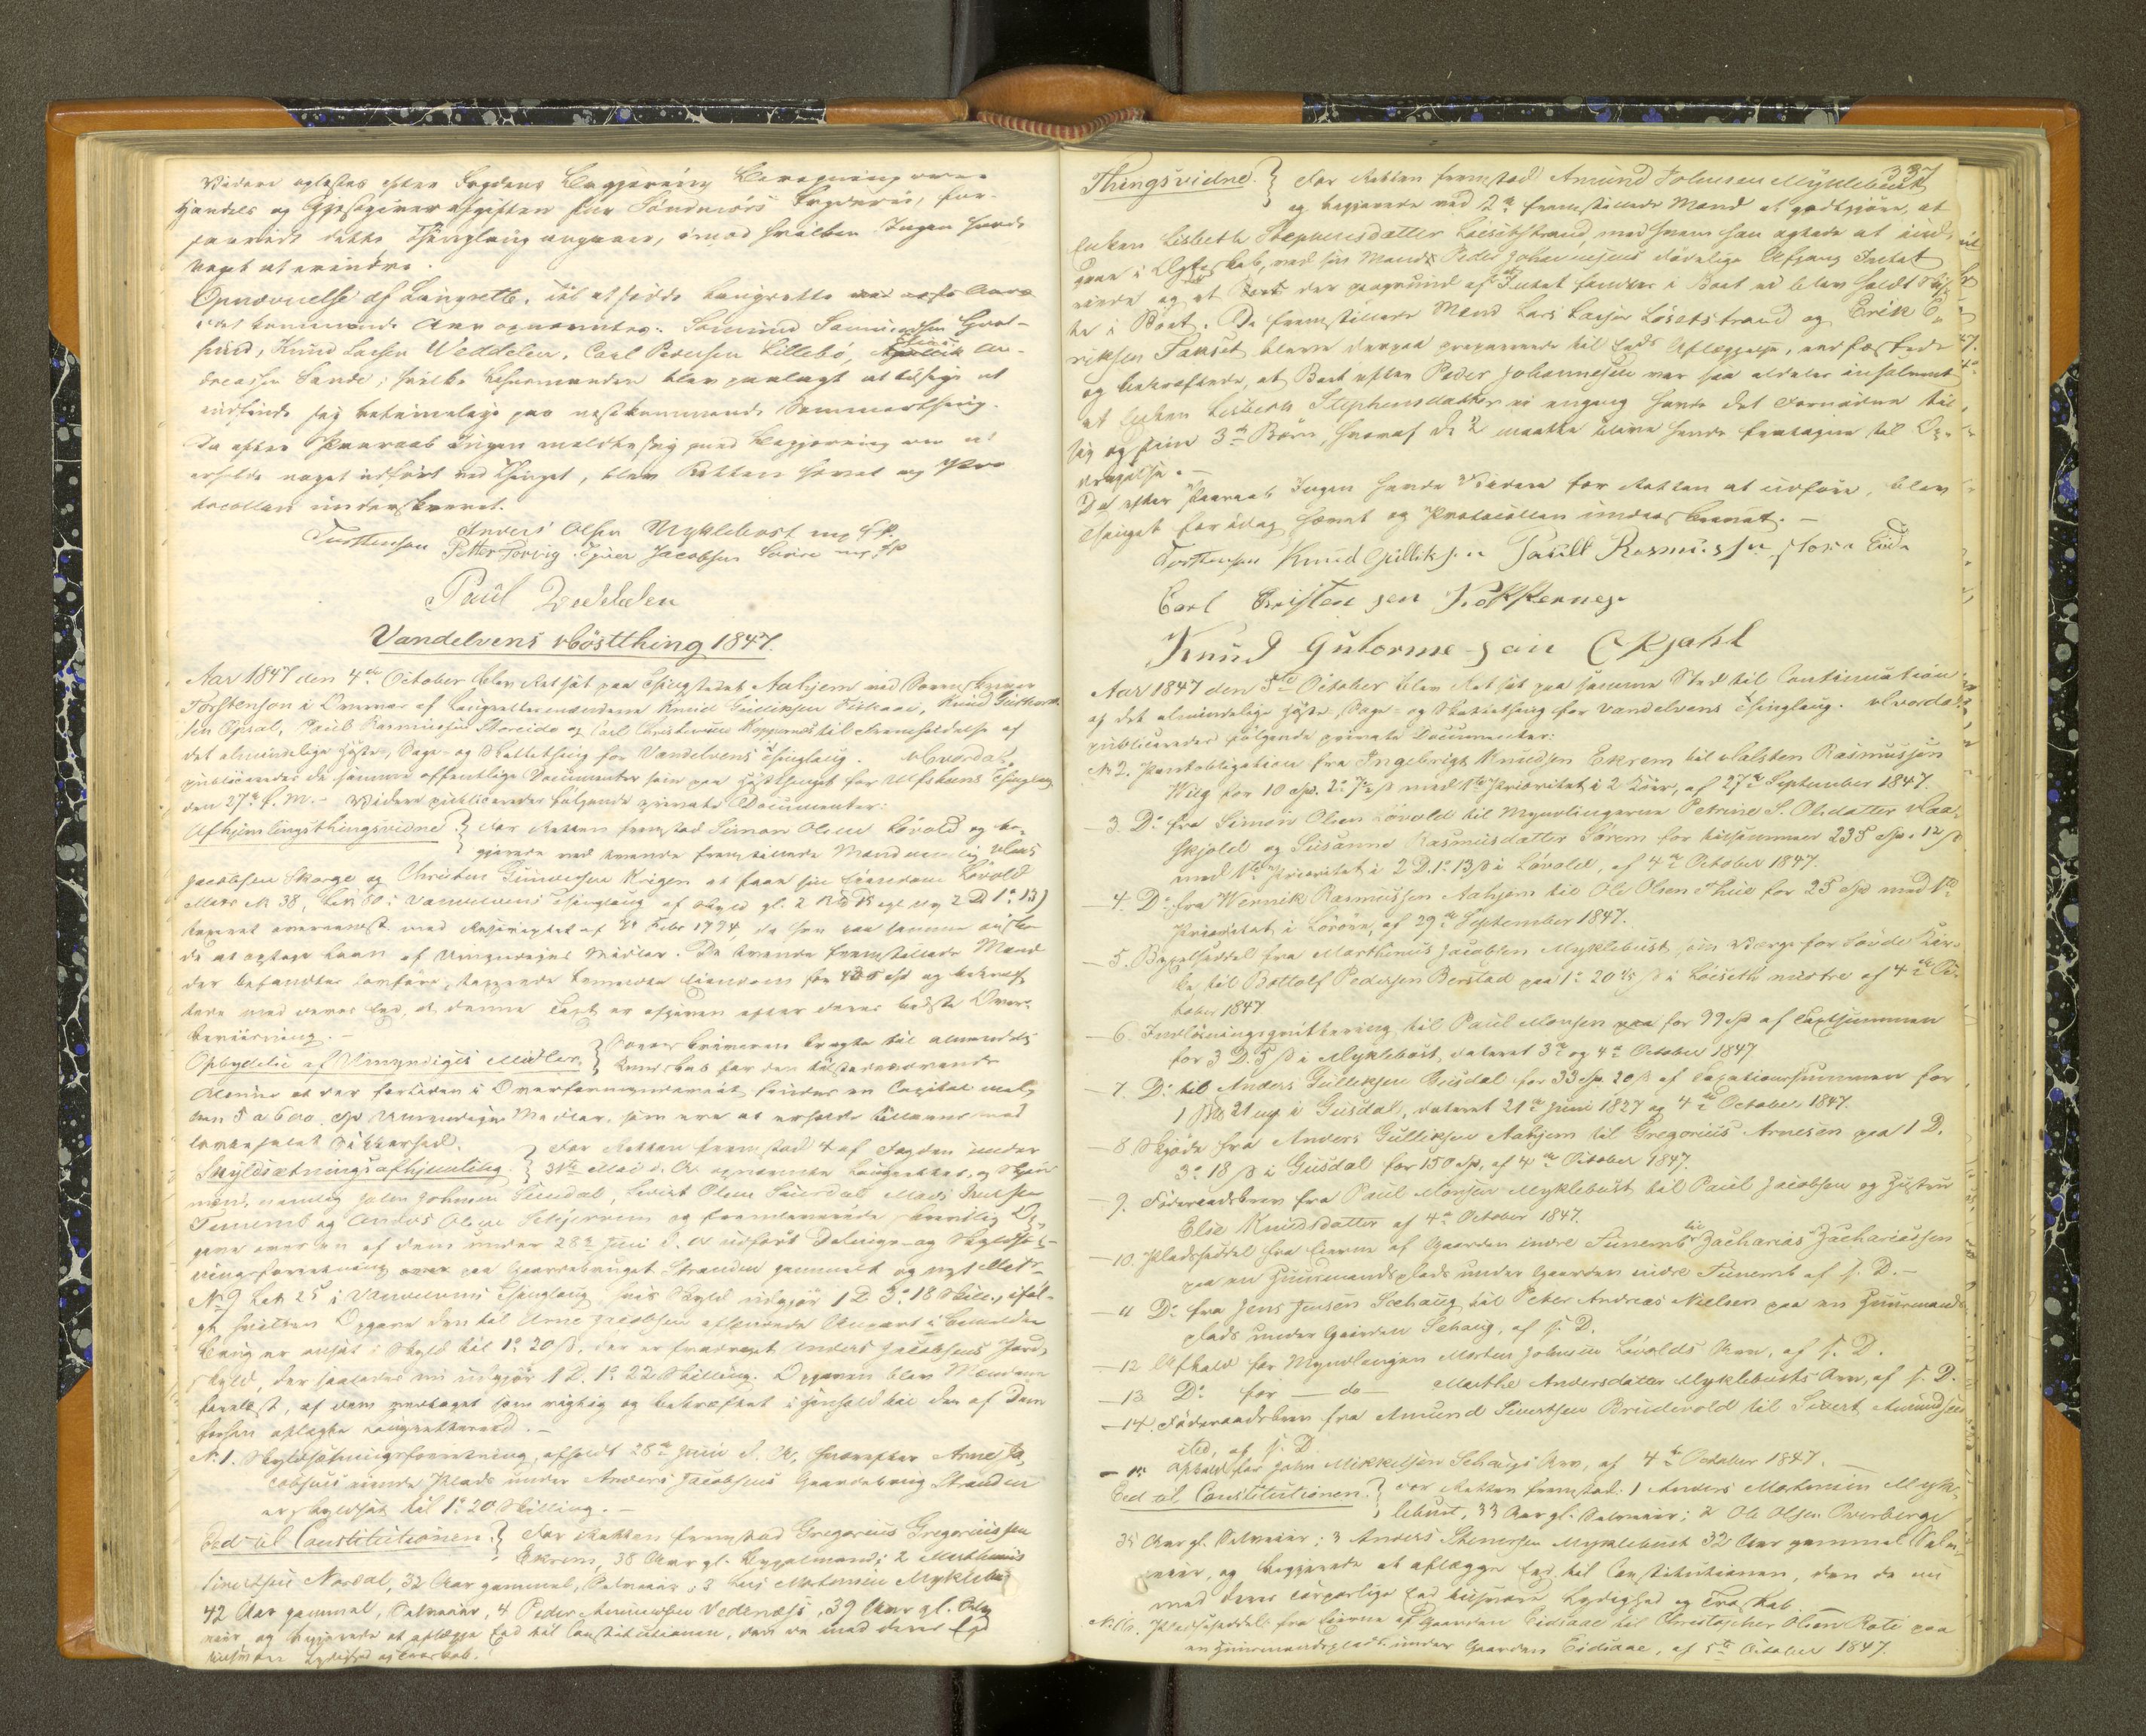 Videre oplæstes efter Fogdens Begjæring Beregning over
Handels og Gjæstgiverafgiften for Söndmörs Fogderie, for-
saavidt dette Thinglaug angaaer, imod hvilken Ingen havde
noget at erindre.
Opnævnelse af Laugrette, til at sidde Laugrette
kommende Aar opnævntes: Samund
Knud Larsen Weddelen, Carl Pedersen Lillebö, An-
dreassen Sande; hvilke blev paalagt at
indfinde sig betimeligen paa næstkommende Sommerthing.
Da efter Paaraab Ingen meldte sig med Begjæring om at
erholde noget udfört ved Thinget, blev Retten hævet og Pro
tocollen underskrevet.
Torstenson Anders Olsen Myklebost m f P.
Petter Jacobsen m f P
Paul Weddelen
Vandelvens Höstthing 1847.
Aar 1847 den 4de October blev Ret sat paa Thingstedet Aahjem ved Sorenskriver
Torstenson i Overvær af Laugrettesmændene Knud Gulliksen Fiskaae, Knud Guttorm-
sen Opsal, Paul Rasmussen Storeide og Carl Christensen Koppernes til Fremholdelse af
det almindelige Höste-, Sage- og Skattething for Vandelvens Thinglaug. Hvorda
publiceredes de samme offentlige Documenter som paa Höstthinget for Ulfsteens Thinglaug
den 27de f. M. - Videre publiceredes fölgende private Documenter:
Afhjemlingsthingsvidne. } For Retten fremstod Simon Olsen Lövold og be-
gjærede ved tvende fremstillede Mænd nemlig Claus
Jacobsen Skorge og Christen Gunnersen Krigen at faae sin Eiendom Lövold
Matr. N 38, Lb. 60 i Vandelvens Thinglaug af Skyld gl. 2 ny 2 D 1 o 13 )
taxeret overeensst. med Rescriptet af 7de Febr 1794, da han paa samme önske
de at optage Laan af Umyndiges Midler. De tvende fremstillede Mænd
der befandtes lovföre, taxerede bemeldte Eiendom for 400 Spd og bekræf
tede med deres Eed, at denne Taxt er afgiven efter deres bedste Over-
beviisning. -
Opbydelse af Umyndiges Midler. } Sorenskriveren bragte til almindelig
Kundskab for den tilstedeværende
Almue at der fortiden i Overformynderiet findes en Capital mel-
lem 5 a 600 Spd Umyndiges Midler, som ere at erholde tillaans mod
lovbefalet Sikkerhed.
Skyldsætningsafhjemling. } For Retten fremstod 4 af Fogden under
31te Mai d. A. opnævnte Laugrettes og Skjöns
mænd, nemlig John Johnsen Sunddal, Sivert Olsen Sundal Mads Jensen
Sunemb og Anders Olsen og fremleverede skriftlig Op-
gave over en af dem under 28de Juni d. A. udfört Delings- og Skyldsæt-
ningsforretning paa Gaardebruget Stranden gammelt og nyt Matr
N 9 Lb. 25 i Vandelvens Thinglaug hvis Skyld udgjör 1 D 3 o 18 Skill., ifölge
hvilken Opgave den til Arne Jacobsen afhændede Anpart i bemeldte
Brug er ansat i Skyld til 1 o 20 ß, der er fradraget Anders Jacobsens Jord-
skyld, der saaledes nu udgjör 1 D. 1 o 22 Skilling. Opgaven blev Mændene
forelæst, af dem vedtaget som rigtig og bekræftet i Henhold til den af dem
forhen aflagte Laugretteseed. -
N. 1. Skyldsætningsforretning, afholdt 28de Juni d. A., hvorefter Arne Ja-
cobsens eiende Plads under Anders Jacobsens Gaardebrug Stranden
er skyldsat til 1 o 20 Skilling. -
Eed til Constitutionen. } For Retten fremstod Gregorius Gregoriussen
Ekrem, 38 Aar gl. Bygselmand; 2 Mathias
Sivertsen Nordal, 32 Aar gammel, Selveier; 3 Lars Mortensen Myklebu
42 Aar gammel, Selveier, 4 Peder Vedenæss, 39 Aar gl. Selv
eier, og begjærede at aflægge Eed til Constitutionen, den de med deres Eed
tilsvore Lydighed og Troskab.
337
Thingsvidne. } For Retten fremstod Amund Johnsen Myklebust
og begjærede ved 2de fremstillede Mænd at godtgjöre, at
Enken Lisbeth Stephensdatter Löisetstrand, med hvem han agtede at ind-
gaae i Ægteskab, ved sin Mands Peder Johannesens dödelige Afgang Intet
eiede og at der paagrund af Intet fandtes i Boet ei blev holdt Skif-
te i Boet. De fremstillede Mænd Lars Larsen Löisetstrand og Erik E-
riksen Sauset bleve derpaa præparerede til Eeds Aflæggelse, edfæstede
og bekræftede, at Boet efter Peder Johannesen var saa aldeles insolvent
at Enken Lisbeth Stephensdatter ei engang havde det Fornödne til
sig og sine 3de Börn, hvoraf de 2 maatte blive hende fratagne til Op-
dragelse. -
Da efter Paaraab Ingen havde Videre for Retten at udföre, blev
Thinget for idag hævet og Protocollen underskrevet. -
Torstenson Knud Gulliksen Paul Rasmussen store Eide
Carl Kristensen Koppernes
Knud Gutormesen Opsahl
Aar 1847 den 5te October blev Ret sat paa samme Sted til Continuation
af det almindelige Höste-, Sage- og Skattething for Vandelvens Thinglaug. Hvorda
publiceredes fölgende private Documenter:
N 2. Pantobligation fra Ingebrigt Knudsen Ekrem til Halsten Rasmussen
Wiig for 10 Spd. 2 o 7 ß med 1ste Prioritet i 2 Köer, af 27de September 1847.
- 3. Do fra Simon Olsen Lövold til Myndlingerne Petrine S. Olsdatter Raa-
skjold og Susanne Rasmusdatter Sörem for tilsammen 235 Spd. 12 ß
med 1ste Prioritet i 2 D. 1 o 13 ß i Lövold, af 4de October 1847.
- 4. Do fra Wernik Rasmussen Aahjem til Ole Olsen Thue for 25 Spd med 1ste
Prioritet i Lösöre, af 29de September 1847.
- 5. Bygselseddel fra Marthinus Jacobsen Myklebust som Værge for Sövde Kir-
ke til Bottolf Pedersen Berstad paa 1 o 20 ß i Löiseth nedstre af 4de Oc-
tober 1847
- 6. Indlösningsqvittering til Paul Monsen for 99 Spd af Taxtsummen
for 3 D. 5 ß i Myklebost, dateret 3de og 4de October 1847
- 7. Do til Anders Gulliksen Gusdal for 33 Spd. 20 ß af Taxationssummen for
1 21 i Gusdal, dateret 21de Juni 1827 og 4de October 1847.
- 8 Skjöde fra Anders Gulliksen Aahjem til Gregorius Arnesen paa 1 D.
3 o 18 ß i Gusdal for 150 Spd, af 4de October 1847.
- 9. Föderaadsbrev fra Paul Monsen Myklebust til Paul Jacobsen og Hustru
Elie Knudsdatter af 4de October 1847.
- 10. Pladsseddel fra Eieren af Gaarden indre Sunemb til Zacharias Zachariassen
paa en Huusmandsplads under Gaarden indre Sunemb af s. D. -
- 11 Do fra Jens Jensen Seehaug til Peter Andreas Nielsen paa en Huusmands-
plads under Gaarden Sehaug, af s. D.
- 12 Afkald for Myndlingen Morten Johnsen Lövolds Arv, af s. D.
- 13 Do for - do - Marthe Andersdatter Myklebusts Arv, af s. D.
- 14. Föderaadsbrev fra Amund Sivertsen Brudevold til Sivert Amundsen
ibid, af s. D.
- 15 Afkald for John Mikkelsen Sehaugs Arv, af 4de October 1847.
Eed til Constitutionen. } For Retten fremstod: 1 Anders Mortensen Myk-
lebust, 33 Aar gl. Selveier; 2 Ole Olsen Overberge
35 Aar gl. Selveier; 3 Anders Stenersen Myklebust 32 Aar gammel Selv-
eier, og begjærede at aflægge Eed til Constitutionen, den de nu
med deres corporlige Eed tilsvore Lydighed og Troskab.
N. 16. Pladsseddel fra Eierne af Gaarden Eidsaae til Christopher Olsen Rote paa
en Huusmandsplads under Gaarden Eidsaae, af 5te October 1847.